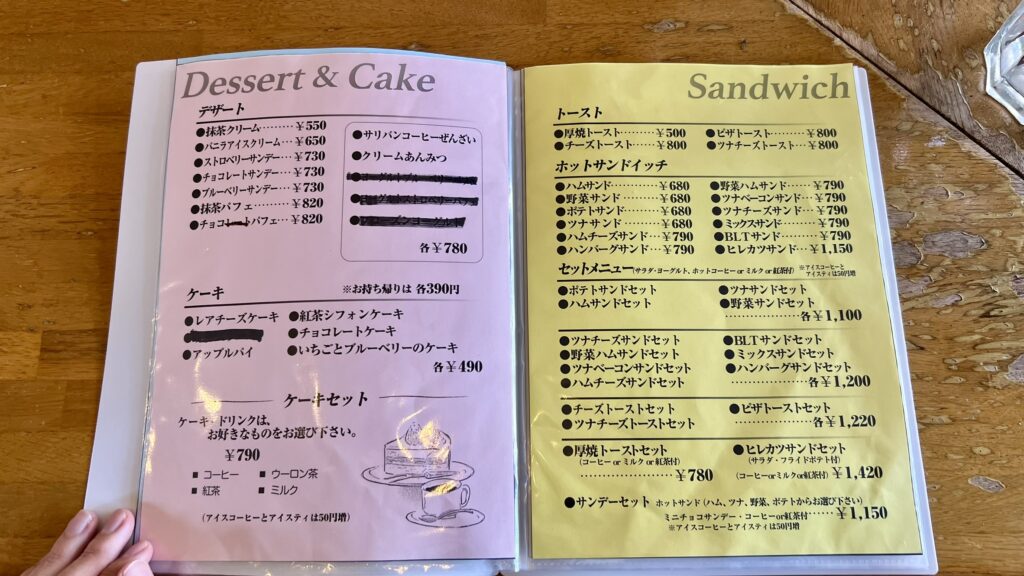 Dessert & Cake
デザート
●抹茶クリーム………￥550
●バニラアイスクリーム……￥650
●ストロベリーサンデー……￥730
●チョコレートサンデー……￥730
●ブルーベリーサンデー……￥730
●抹茶パフェ…………￥820
●チョコレートパフェ……￥820
●サリバンコーヒーぜんざい
●クリームあんみつ
各￥780
ケーキ
※お持ち帰りは 各390円
●レアチーズケーキ
●アップルパイ
●紅茶シフォンケーキ
●チョコレートケーキ
●いちごとブルーベリーのケーキ
各￥490
ケーキセット
ケーキ・ドリンクは、
お好きなものをお選び下さい。
￥790
■ コーヒー ■ ウーロン茶
■ 紅茶 ■ ミルク
(アイスコーヒーとアイスティは50円増)
Sandwich
トースト
●厚焼トースト………￥500 ●ピザトースト………￥800
●チーズトースト……￥800 ●ツナチーズトースト……￥800
ホットサンドイッチ
●ハムサンド…………￥680 ●野菜ハムサンド………￥790
●野菜サンド…………￥680 ●ツナベーコンサンド……￥790
●ポテトサンド………￥680 ●ツナチーズサンド……￥790
●ツナサンド…………￥680 ●ミックスサンド………￥790
●ハムチーズサンド…￥790 ●BLTサンド…………￥790
●ハンバーグサンド…￥790 ●ヒレカツサンド……￥1,150
セットメニュー(サラダ・ヨーグルト、ホットコーヒー or ミルク or 紅茶付) ※アイスコーヒーと
アイスティは50円増
●ポテトサンドセット ●ツナサンドセット
●ハムサンドセット ●野菜サンドセット
………………各￥1,100
●ツナチーズサンドセット ●BLTサンドセット
●野菜ハムサンドセット ●ミックスサンドセット
●ツナベーコンサンドセット ●ハンバーグサンドセット
●ハムチーズサンドセット ………………各￥1,200
●チーズトーストセット ●ピザトーストセット
●ツナチーズトーストセット ………………各￥1,220
●厚焼トーストセット
(コーヒー or ミルク or 紅茶付)
………………￥780
●ヒレカツサンドセット
(サラダ・フライドポテト付)
(コーヒーorミルクor紅茶付) ￥1,420
●サンデーセット ホットサンド(ハム、ツナ、野菜、ポテトからお選び下さい)
ミニチョコサンデー・コーヒーor紅茶付……￥1,150
※アイスコーヒーとアイスティは50円増